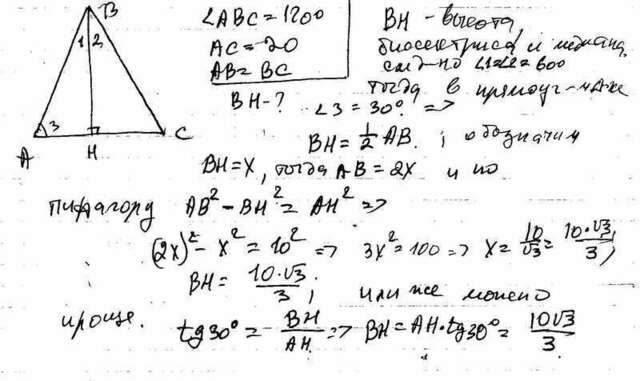 B
1 2
3
A H C
∠ABC = 120°
AC = 20
AB = BC
BH - ?
BH - высота,
биссектриса и медиана,
след-но ∠1=∠2=60°
∠3 = 30° тогда в прямоуг-м ΔABH =>
BH = 1/2 AB. ; обозначим
BH = x, тогда AB = 2x и по
пифагору AB² - BH² = AH² =>
(2x)² - x² = 10² => 3x² = 100 => x = 10/√3 = 10·√3/3,
BH = 10·√3/3, или же можно
проще. tg30° = BH/AH => BH = AH·tg30° = 10√3/3.